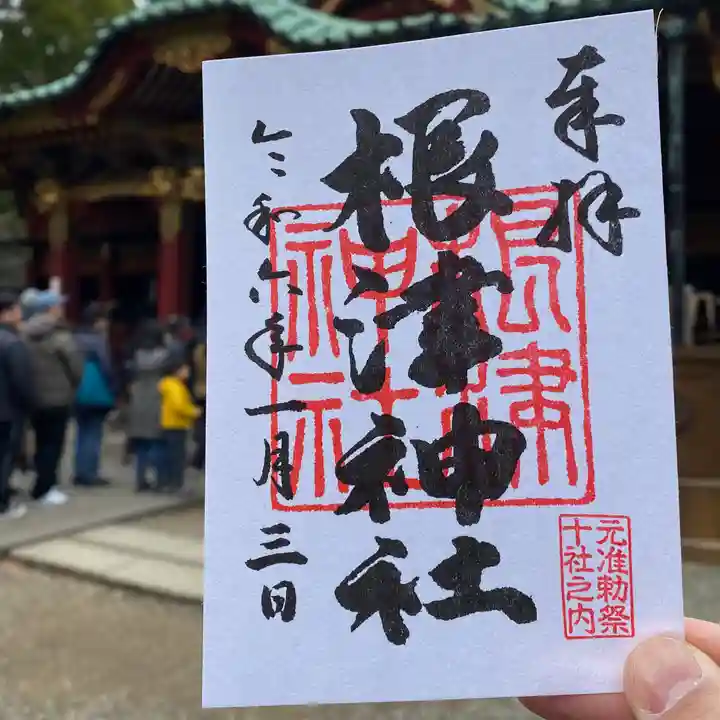 奉拝
根津神社
根津神社
元准勅祭
十社之内
令和六年一月三日